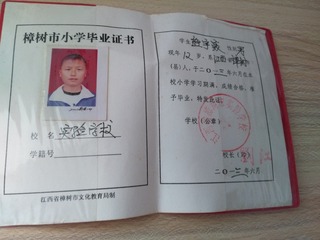 樟树市小学毕业证书
校 名 实验学校
学籍号
江西省樟树市文化教育局制
学生 性别 男
现年 12 岁，系 江西 樟树
(县)人，于二〇一三年六月在本
校小学学习期满，成绩合格，准
予毕业，特发此证。
学校(公章)
校长(印)
二〇一三年六月